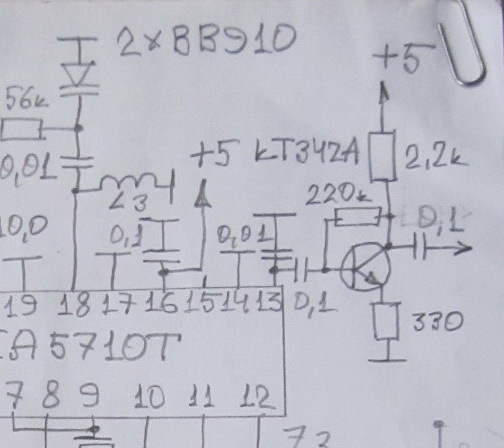 2×BB910
+5
56k
0,01
+5 KT342A
2,2k
L3
220k
0,1
10,0
0,1
0,01
19 18 17 16 15 14 13
0,1
330
A5710T
7 8 9 10 11 12